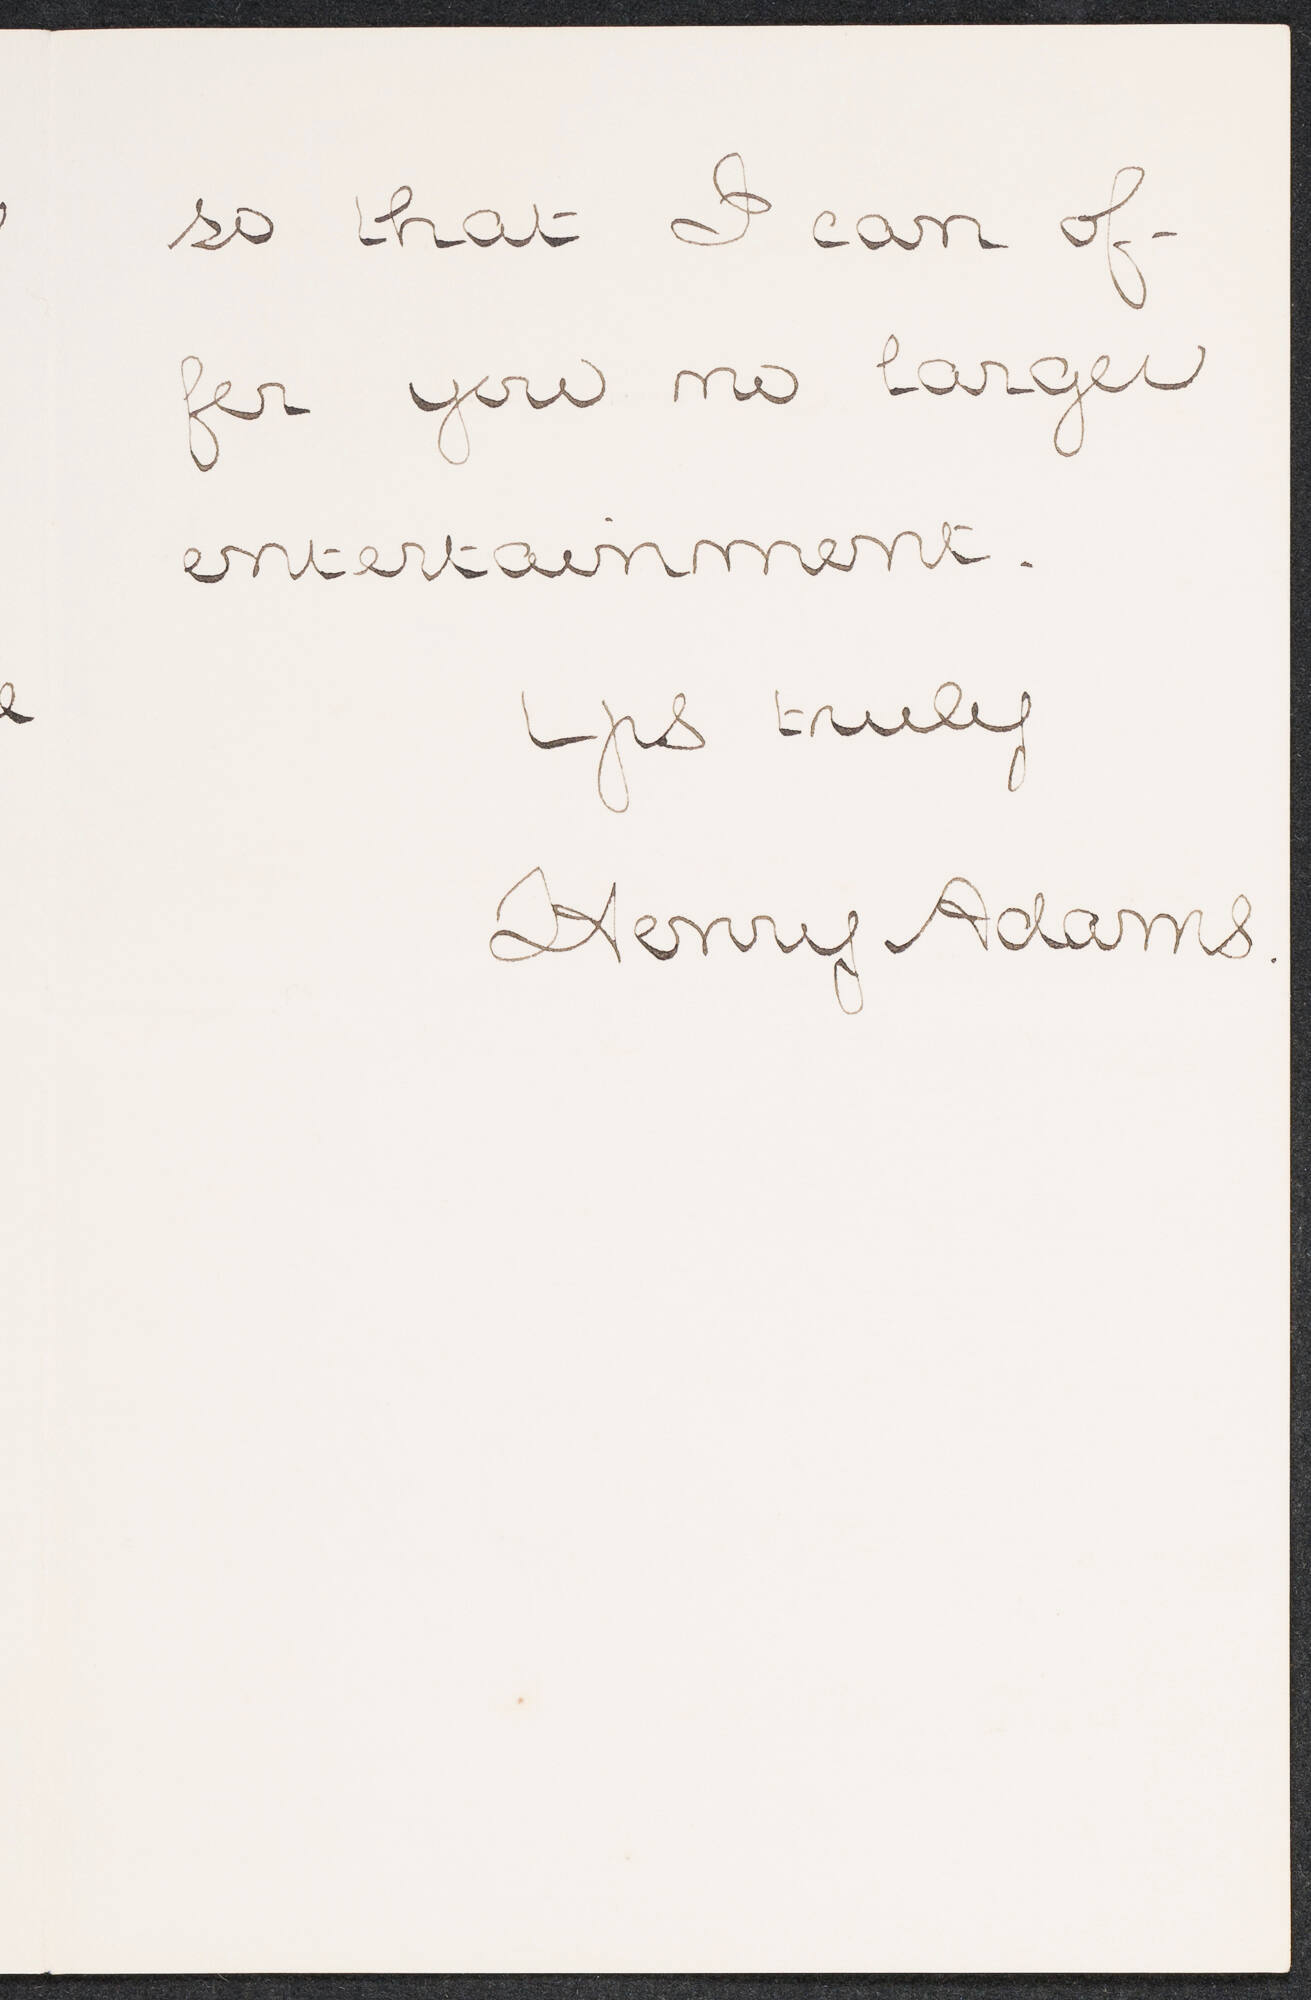 so that I can of-
fer you no larger
entertainment.
Yrs truly
Henry Adams.